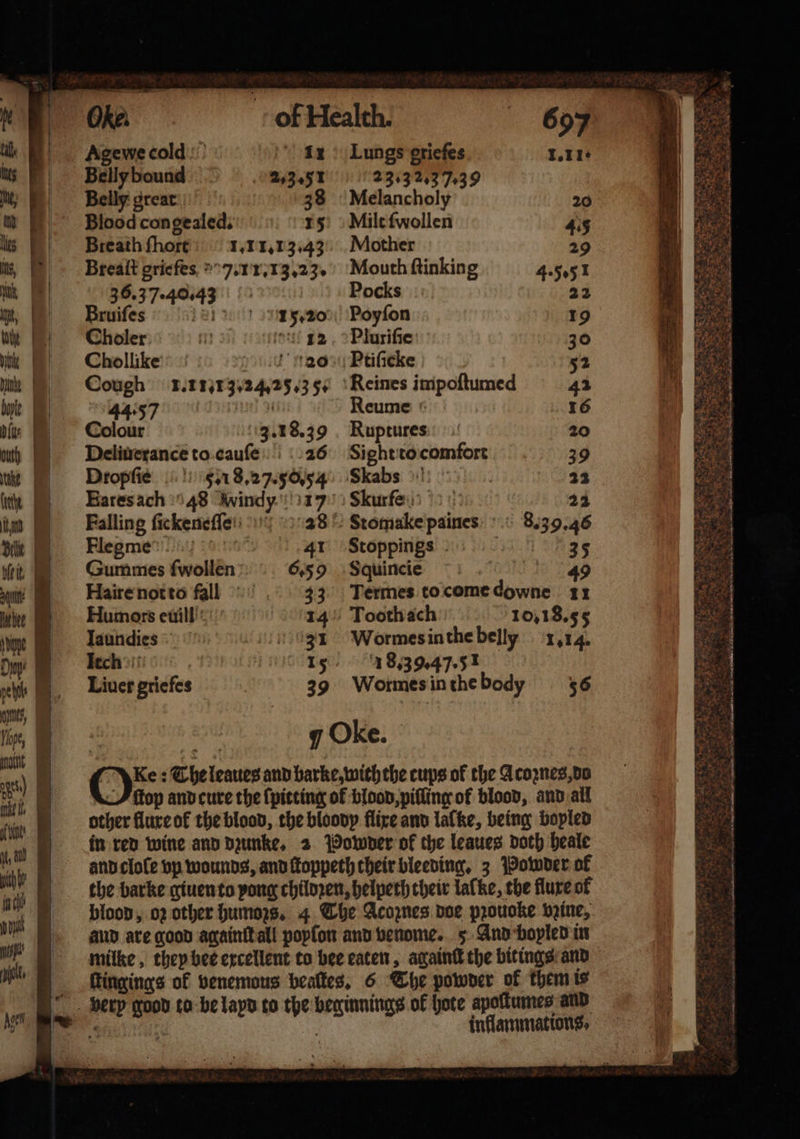 Oke. of Health. 697
Agewe cold 11
Bellybound 2,3.51
Belly great 38
Blood congealed. 15
Breath ſhort 1,11,13.43
Breaſt griefes, 7.11,13,23.
36.37.40.43
Bruiſes 15,20
Choler 12
Chollike 20
Cough 1.11,13,24,25.35.
44.57
Colour 3.18.39
Deliuerance to cauſe 26
Dropſie 5,18,27.50,54
Eares ach 48 windy 17
Falling ſickeneſſe 28
Flegme 41
Gummes ſwollen 6,59
Haire not to fall 33
Humors euill 14
Iaundies 31
Itch 15
Liuer griefes 39
Lungs griefes 1.11.
23.32.37.39
Melancholy 20
Milt ſwollen 4.5
Mother 29
Mouth ſtinking 4.5.51
Pocks 22
Poyſon 19
Pluriſie 30
Ptiſicke 52
Reines impoſtumed 42
Reume 16
Ruptures 20
Sight to comfort 39
Skabs 22
Skurfe 22
Stomake paines 8.39.46
Stoppings 35
Squincie 49
Termes to come downe 11
Toothach 10,18.55
Wormes in the belly 1,14.
18.39.47.51
Wormes in the body 56
¶ Oke.
OKe: The leaues and barke, with the cups of the Acornes, do
ſtop and cure the ſpitting of blood, piſſing of blood, and all
other fluxe of the blood, the bloody flixe and laſke, being boyled
in red wine and drunke. 2 Powder of the leaues doth heale
and cloſe vp wounds, and ſtoppeth their bleeding. 3 Powder of
the barke giuen to yong children, helpeth their laſke, the fluxe of
blood, or other humors. 4 The Acornes doe prouoke vrine,
and are good againſt all poyſon and venome. 5 And boyled in
milke, they bee excellent to bee eaten, againſt the bitings and
ſtingings of venemous beaſtes. 6 The powder of them is
very good to be layd to the beginnings of hote apoſtumes and
inflammations.